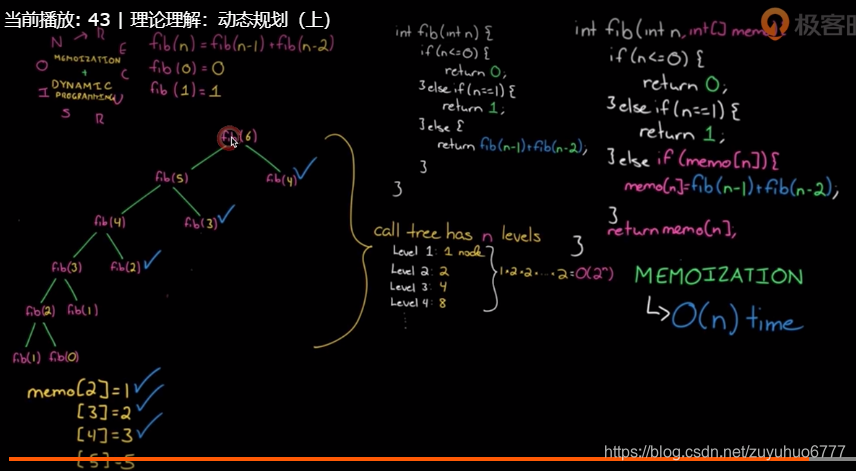 当前播放: 43 | 理论理解：动态规划（上）
极客时
N → R
E
O
MEMOIZATION
+
C
I
DYNAMIC
PROGRAMMING
U
S
R
fib(n)=fib(n-1)+fib(n-2)
fib(0)=0
fib(1)=1
fib(6)
fib(5) fib(4)
fib(4) fib(3)
fib(3) fib(2)
fib(2) fib(1)
fib(1) fib(0)
memo[2]=1
[3]=2
[4]=3
[5]=5
int fib(int n) {
if(n<=0) {
return 0;
}else if(n==1) {
return 1;
}else {
return fib(n-1)+fib(n-2);
}
}
call tree has n levels
Level 1: 1 node
Level 2: 2
Level 3: 4
Level 4: 8
1·2·2·...·2=O(2ⁿ)
int fib(int n, int[] memo
if(n<=0) {
return 0;
}else if(n==1) {
return 1;
}else if(memo[n]) {
memo[n]=fib(n-1)+fib(n-2);
}
return memo[n];
}
MEMOIZATION
↳ O(n) time
https://blog.csdn.net/zuyuhuo6777